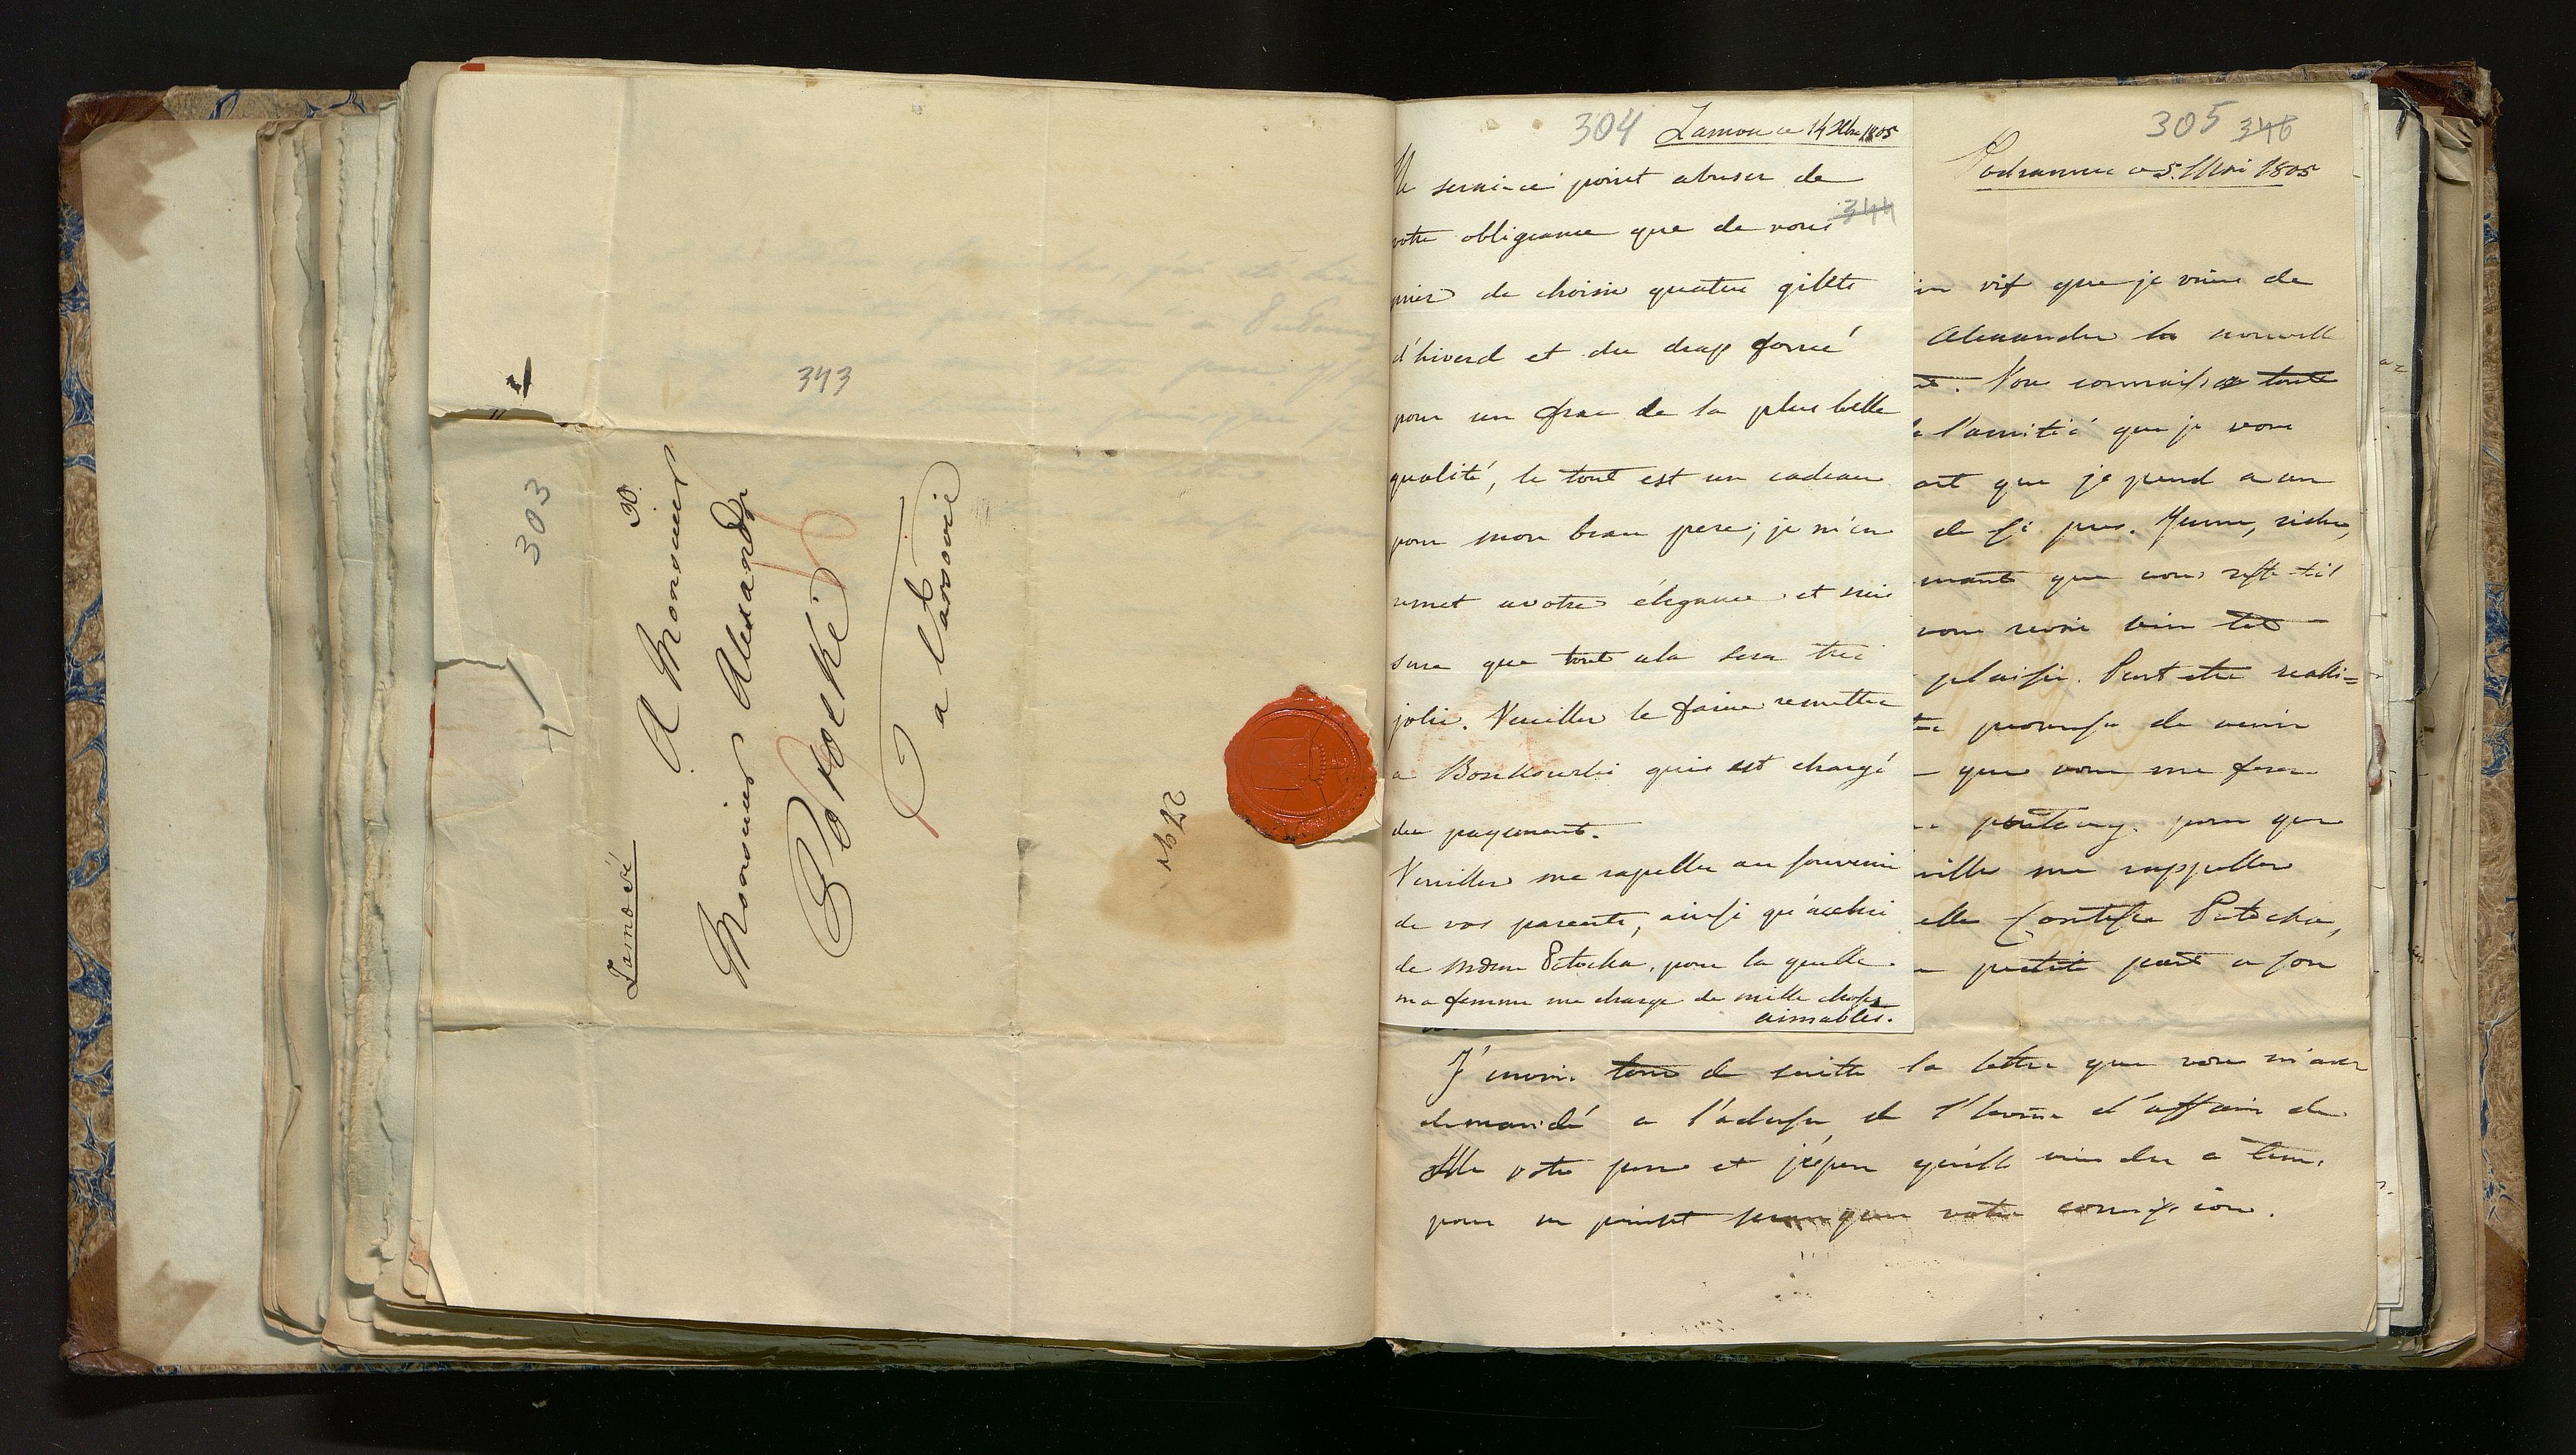 343
303
30.
A Monsieur
Monsieur Alexandre
Potocki
a Varsovie
Zamosć
27 gr
304 Zamosc ce 14 Xbre 1805
Ne serai-ce point abuser de
votre obligeance que de vous
344
prier de choisir quatre gilets
d'hiverd et du drap foncé
pour un frac de la plus belle
qualité, le tout est un cadeau
pour mon beau pere; je m'en
remet a votre élégance et suis
sure que tout cela sera tres
jolie. Veuillez le faire remettre
a qui est chargé
du payement.
Veuillez me rapeller au souvenir
de vos parents, ainsi qu'a celui
de Mdme Potocka, pour la quelle
ma femme me charge de mille choses
aimables.
305 346
ce 5. Mai 1805
vif que je viens de
Alexandre la nouvelle
Vous connaissez toute
l'amitié que je vous
que je prend a un
de si pres. Jeune, riche,
que vous reste-t-il
vous revoir bien tot
plaisir. Peut etre reali=
promesse de venir
que vous me ferez
pour que
me rappeller
Comtesse Potocka,
petite part a son
J'envoie tout de suitte la lettre que vous m'avez
demandé a l'adresse de l'homme d'affaire de
votre pere et j'espere qu'elle viendra a tems
pour ne point manquer votre comission.